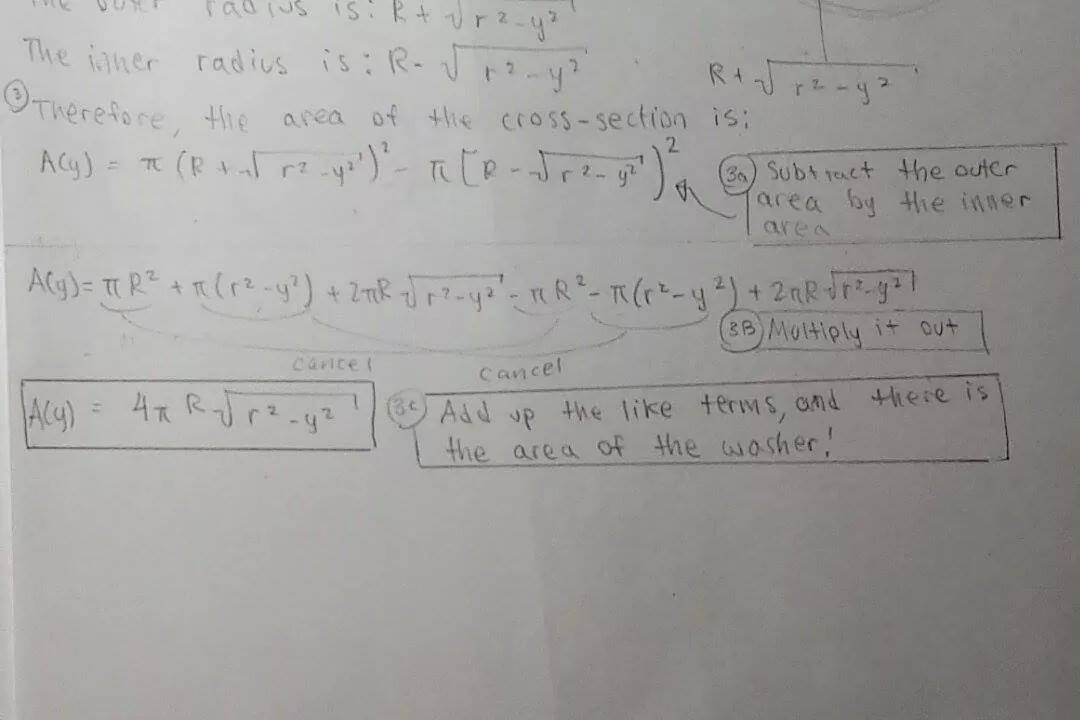 The outer radius is: R + √r²-y²
The inner radius is: R- √r²-y²
R + √r²-y²
③ Therefore, the area of the cross-section is:
A(y) = π (R + √r²-y²)² - π [R - √r²-y²)²
3a Subtract the outer
area by the inner
area
A(y)= πR² + π(r²-y²) + 2πR √r²-y² - πR² - π(r²-y²) + 2πR √r²-y²
3B Multiply it out
cancel
cancel
A(y) = 4π R √r²-y²
3c Add up the like terms, and there is
the area of the washer!